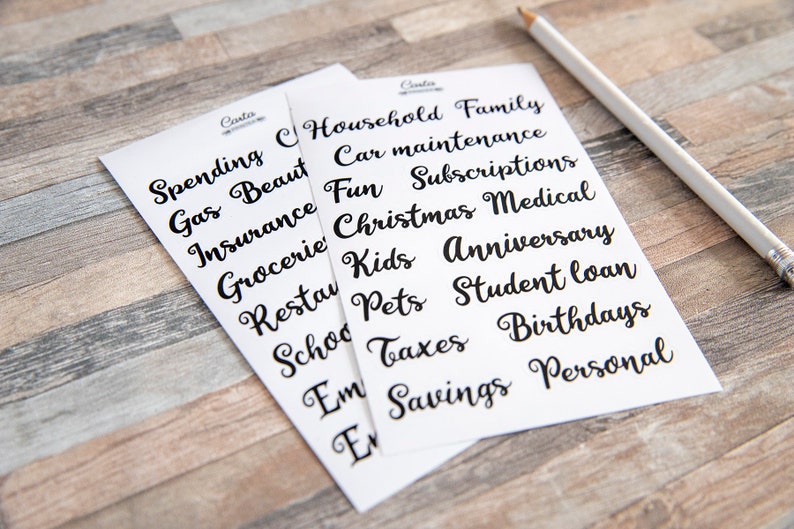 Carta
Spending C
Gas Beaut
Insurance
Groceries
Restau
Schoo
Em
En
Carta
Household Family
Car maintenance
Fun Subscriptions
Christmas Medical
Kids Anniversary
Pets Student loan
Taxes Birthdays
Savings Personal